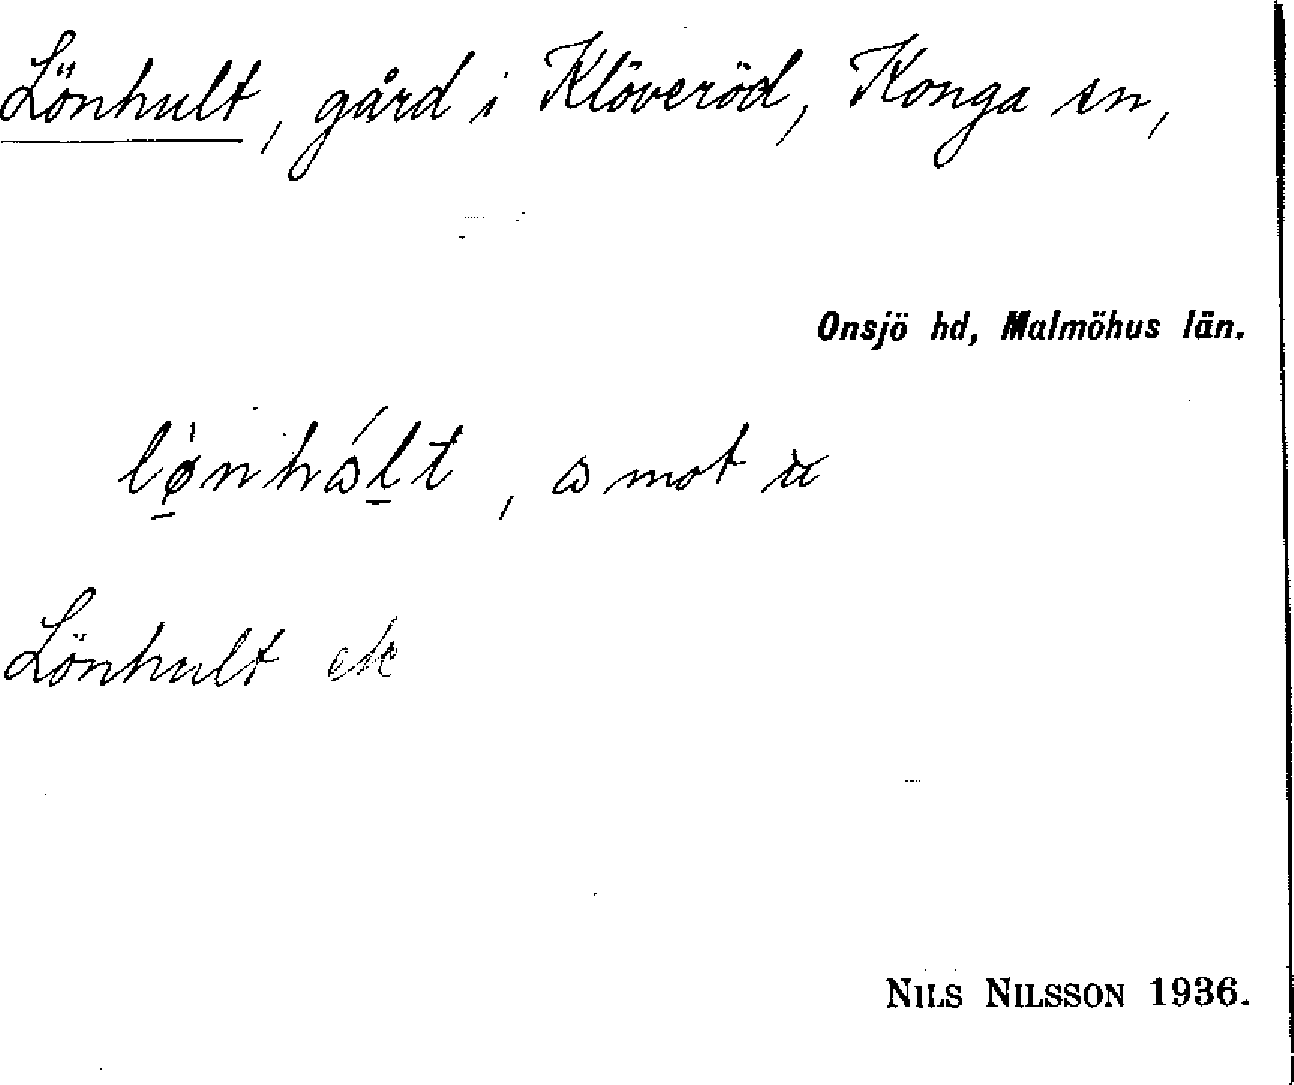 Lönhult, gård i Klöveröd, Konga sn,
Onsjö hd, Malmöhus län.
mot
Lönhult ek
NILS NILSSON 1936.